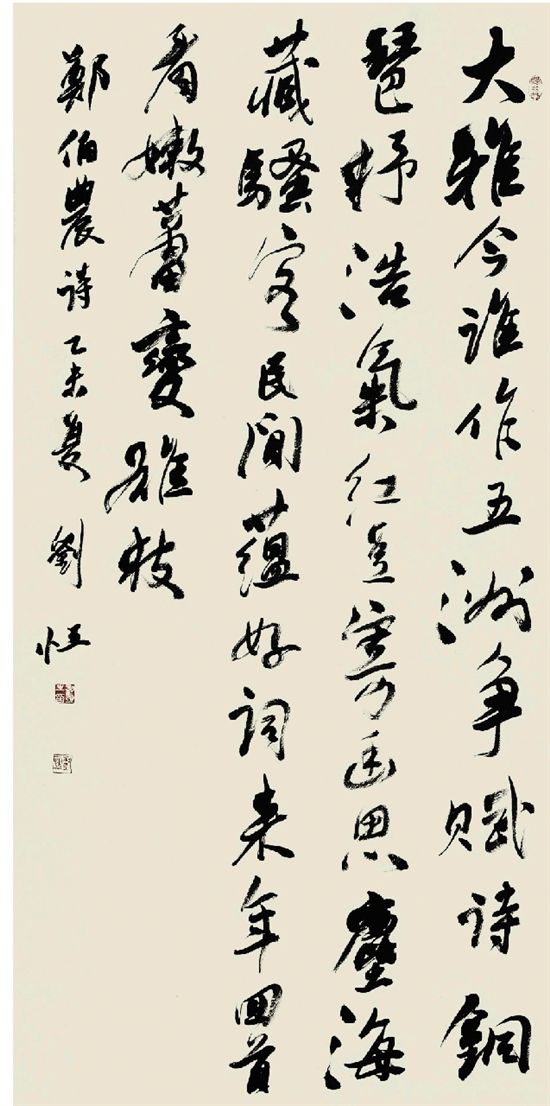 大雅今谁作五洲争赋诗銅
琶抒浩氣红豆寄幽思塵海
藏騷客民间蕴好词来年回首
看嫩蕾變雄枝
鄭伯農诗乙未夏劉恒